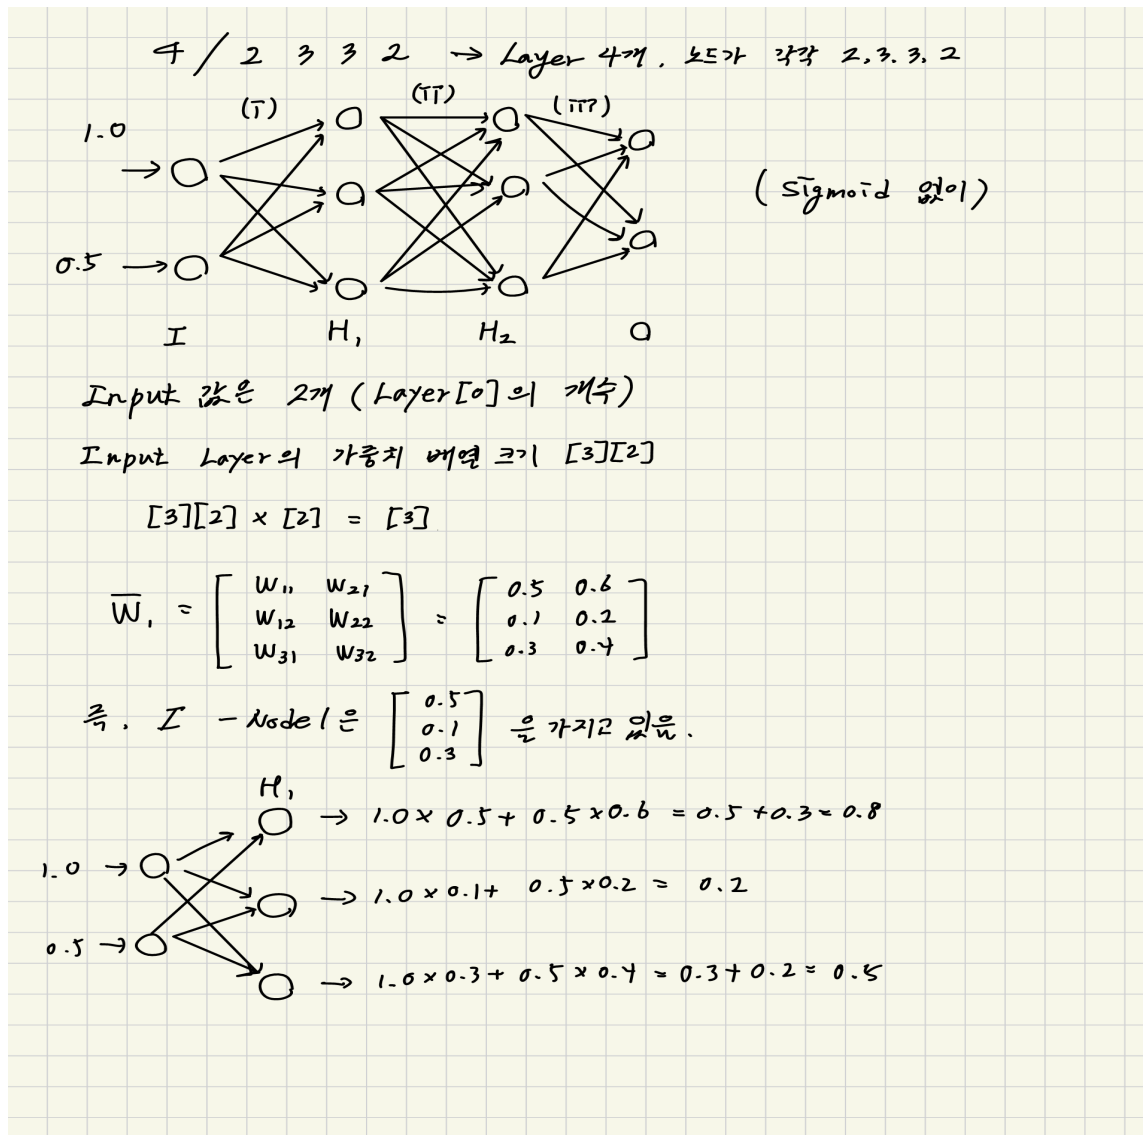 4 / 2 3 3 2 → Layer 4개. 노드가 각각 2, 3. 3. 2
(i) (ii) (iii)
1.0
(Sigmoid 없이)
0.5
I H₁ H₂ O
Input 값은 2개 (Layer[0]의 개수)
Input Layer의 가중치 배열 크기 [3][2]
[3][2] × [2] = [3]
W̅₁ = [ W₁₁ W₂₁ ] = [ 0.5 0.6 ]
[ W₁₂ W₂₂ ] [ 0.1 0.2 ]
[ W₃₁ W₃₂ ] [ 0.3 0.4 ]
즉. I - Node 1은 [ 0.5 0.1 0.3 ] 을 가지고 있음.
H₁
→ 1.0 × 0.5 + 0.5 × 0.6 = 0.5 + 0.3 = 0.8
1.0 →
→ 1.0 × 0.1 + 0.5 × 0.2 = 0.2
0.5 →
→ 1.0 × 0.3 + 0.5 × 0.4 = 0.3 + 0.2 = 0.5